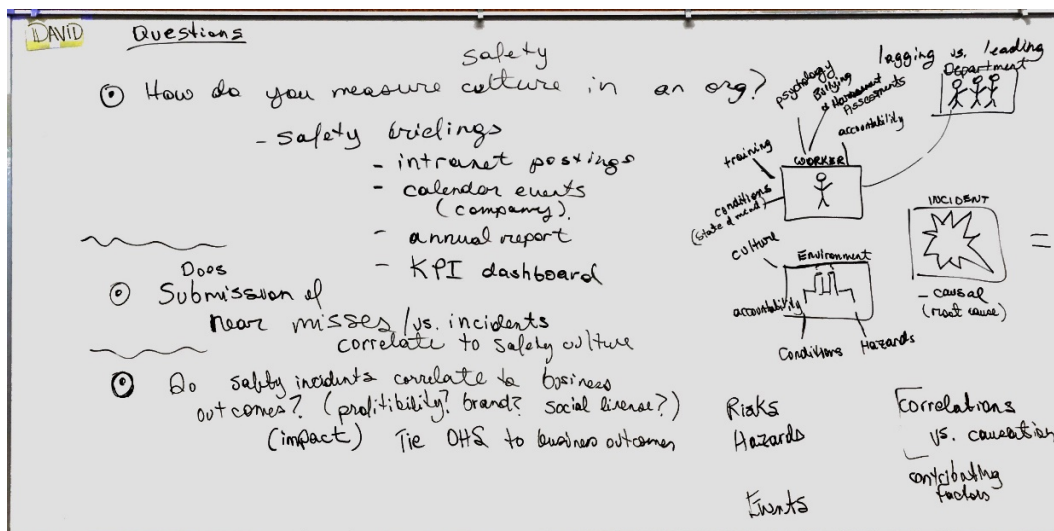 DAVID
Questions
safety
How do you measure culture in an org?
- safety briefings
- intranet postings
- calendar events
(company).
- annual report
- KPI dashboard
Does
Submission of
near misses/vs. incidents
correlate to safety culture
Do safety incidents correlate to business
outcomes? (profitibility? brand? social license?)
(impact) Tie OHS to business outcomes
lagging vs. leading
Department
psychology
Bullying
Harassment
Assessments
accountability
training
WORKER
conditions
(State of mind)
culture
Environment
accountability
Conditions
Hazards
INCIDENT
=
- causal
(root cause)
Risks
Hazards
Events
Correlations
vs. causation
contributing
factors